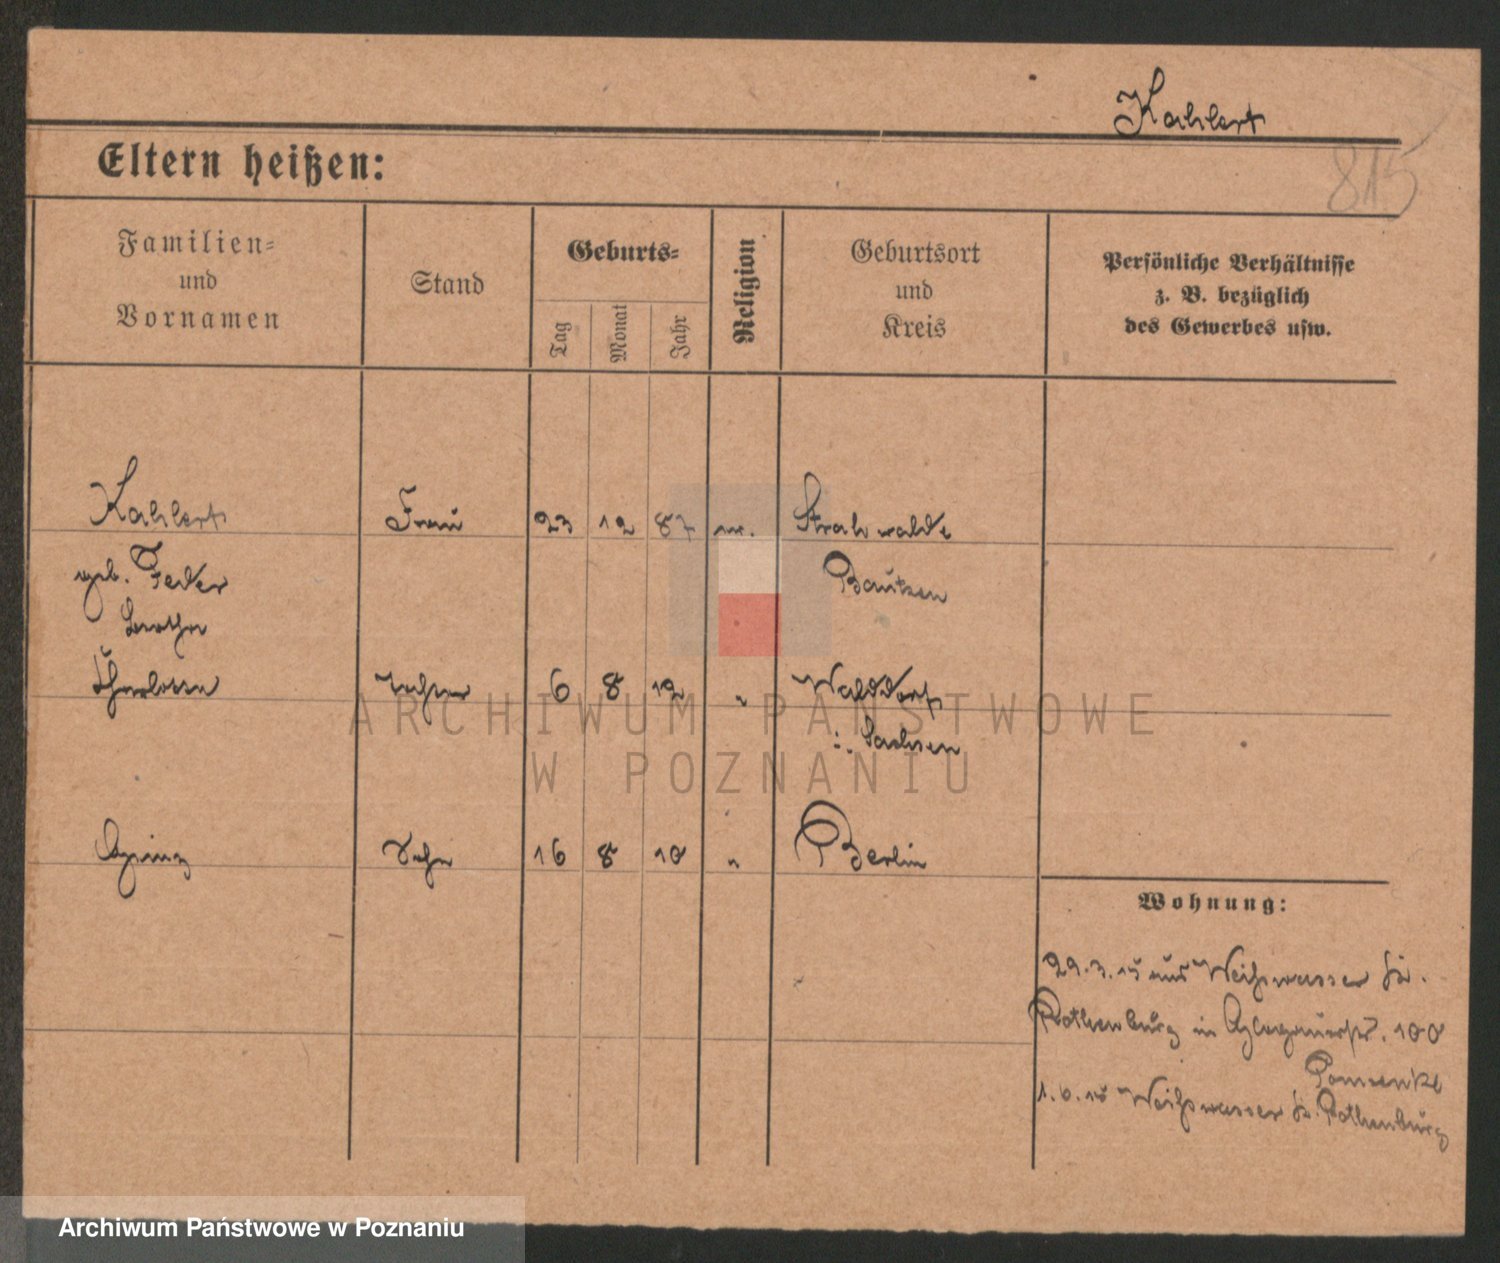 Kahlert
815
Eltern heißen:
Familien-
und
Vornamen
Stand
Geburts-
Tag
Monat
Jahr
Religion
Geburtsort
und
Kreis
Persönliche Verhältnisse
z. B. bezüglich
des Gewerbes usw.
Kahlert Frau 23 12 87 Strahwalde
geb. Feder Bautzen
Charlotte Tochter 6 8 12 " Walddorf
i. Sachsen
Sohn 16 8 10 " Berlin
Wohnung:
29.3.15 aus Weißwasser Kr.
Rothenburg in Glogauerstr. 100
1.6.15 Weißwasser Kr. Rothenburg
ARCHIWUM PAŃSTWOWE
W POZNANIU
Archiwum Państwowe w Poznaniu